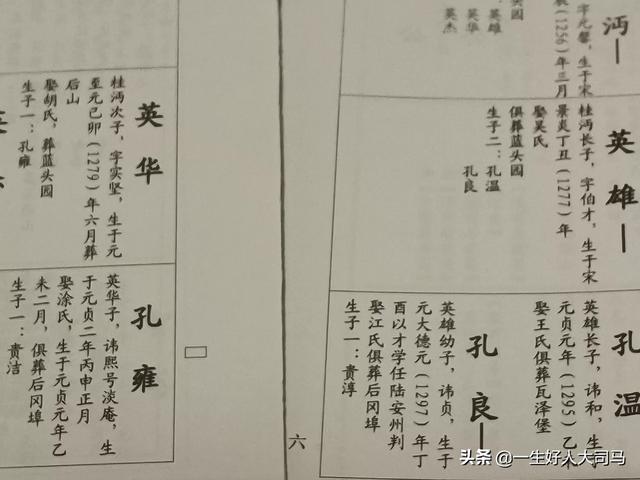 沔
字元馨，生于宋
（1256）年三月
英雄
英华
英杰
英雄
桂沔长子，字伯才，生于宋
景炎丁丑（1277）年
娶吴氏
俱葬蓝头园
生子二：孔温
孔良
孔温
英雄长子，讳和，生于
元贞元年（1295）乙未
娶王氏俱葬瓦泽堡
孔良
英雄幼子，讳贞，生于
元大德元（1297）年丁
酉以才学任陆安州判
娶江氏俱葬后冈埠
生子一：贵淳
六
英华
桂沔次子，字实坚，生于元
至元己卯（1279）年六月葬
后山
娶胡氏，葬蓝头园
生子一：孔雍
孔雍
英华子，讳熙号淡庵，生
于元贞二年丙申正月
娶涂氏，生于元贞元年乙
未二月，俱葬后冈埠
生子一：贵洁
头条 @一生好人大司马